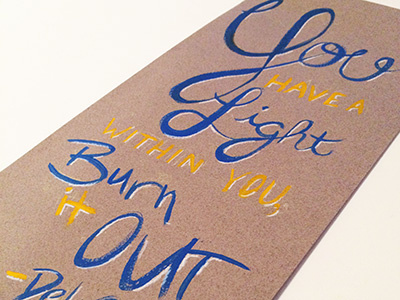 You
HAVE A
Light
WITHIN YOU,
Burn
it
OUT